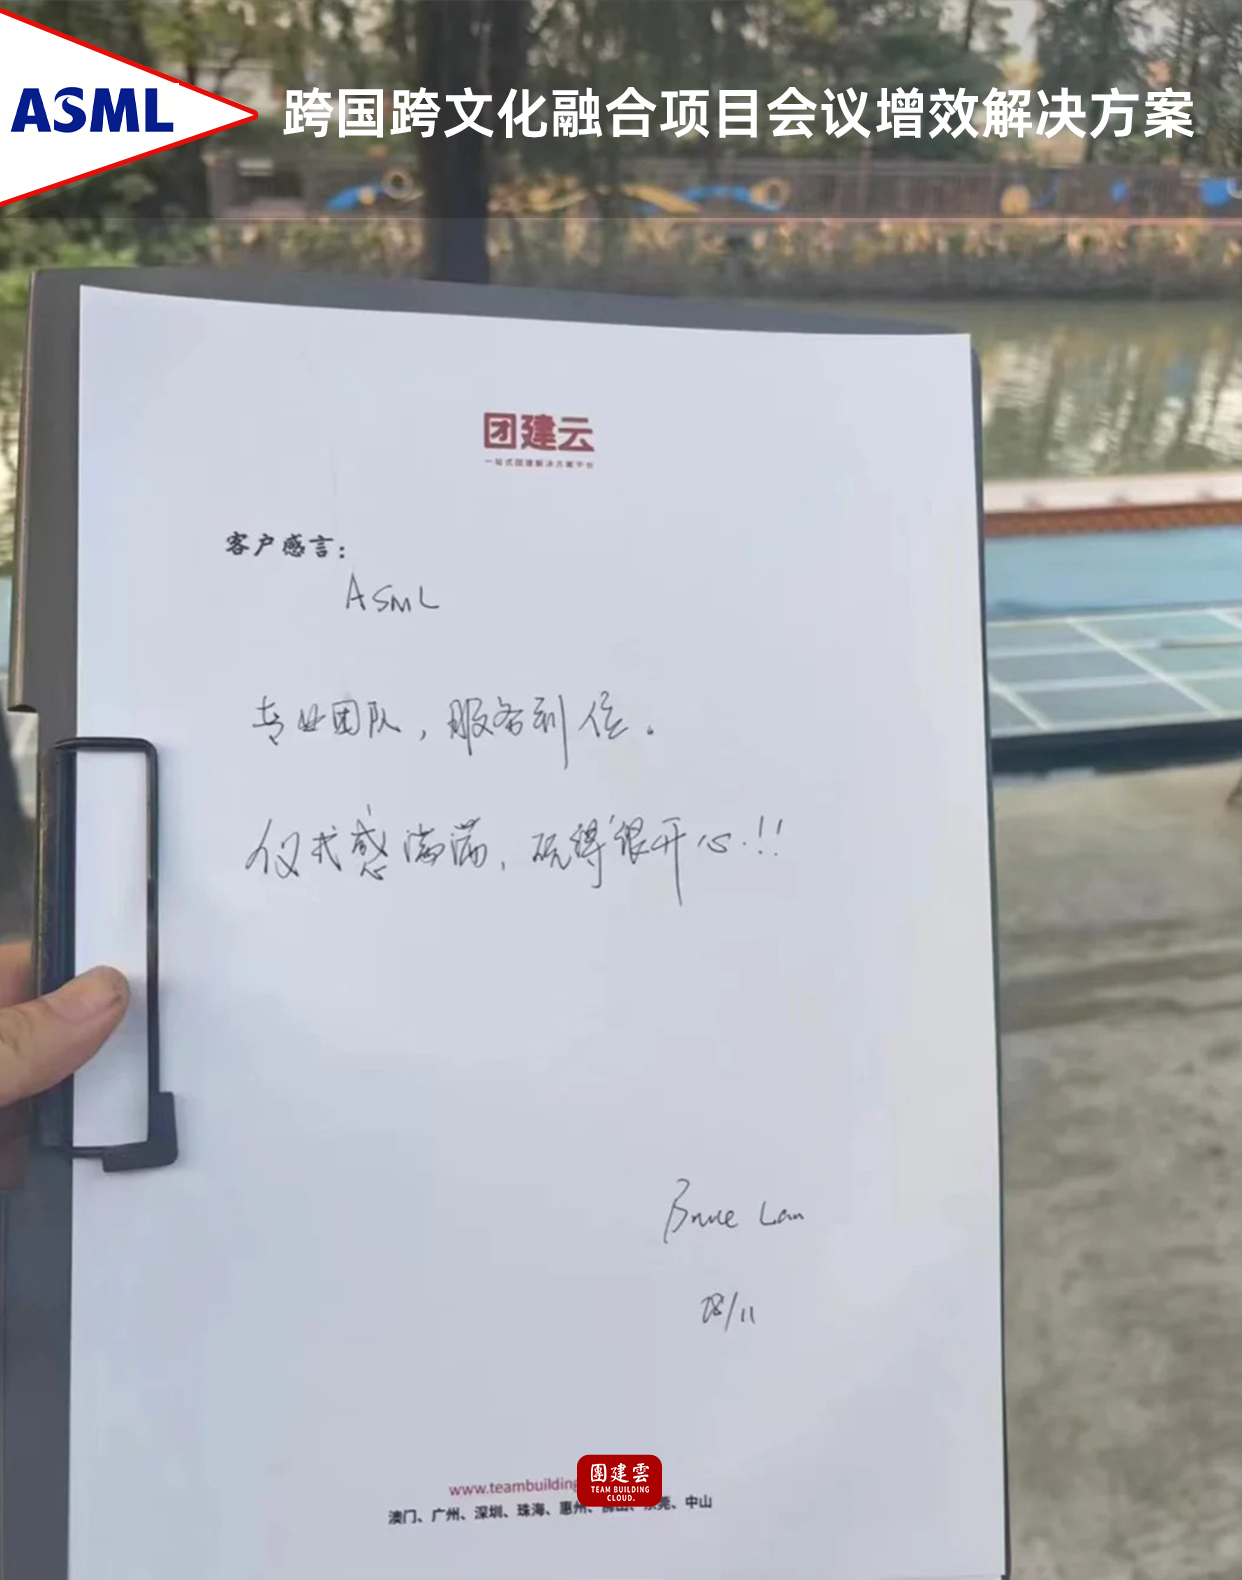 ASML
跨国跨文化融合项目会议增效解决方案
团建云
一站式团建解决方案平台
客户感言：
ASML
专业团队，服务到位。
仪式感满满，玩得很开心!!!
Bruce Lan
28/11
www.teambuilding
團建雲
TEAM BUILDING
CLOUD.
澳门、广州、深圳、珠海、惠州、佛山、东莞、中山